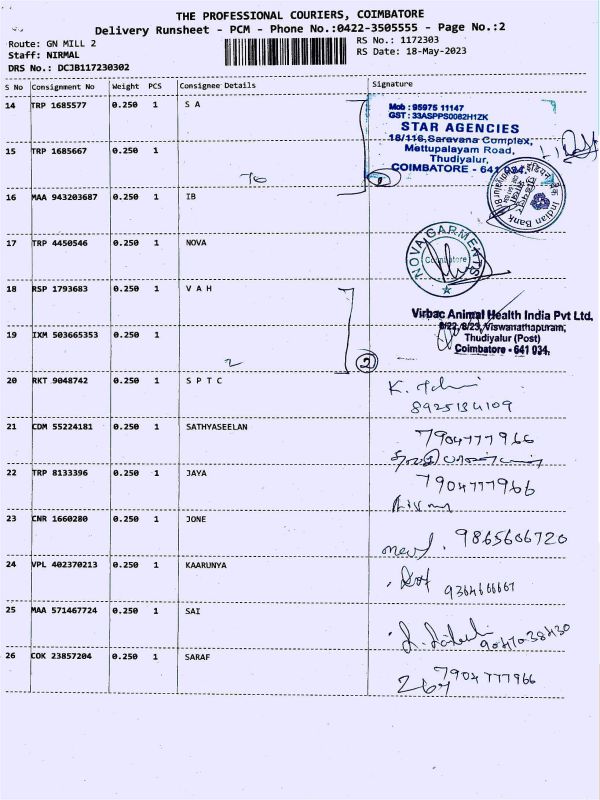 THE PROFESSIONAL COURIERS, COIMBATORE
Delivery Runsheet - PCM - Phone No.:0422-3505555 - Page No.:2
Route: GN MILL 2
Staff: NIRMAL
DRS No.: DCJB117230302
RS No.: 1172303
RS Date: 18-May-2023
S No Consignment No Weight PCS Consignee Details Signature
14 TRP 1685577 0.250 1 S A
Mob : 95975 11147
GST : 33ASPPS0082H1ZK
STAR AGENCIES
18/116, Saravana Complex,
Mettupalayam Road,
Thudiyalur,
COIMBATORE - 641 034.
15 TRP 1685667 0.250 1
16 MAA 943203687 0.250 1 IB
Indian Bank
17 TRP 4450546 0.250 1 NOVA
NOVA GARMENTS
Coimbatore
18 RSP 1793683 0.250 1 V A H
Virbac Animal Health India Pvt Ltd.
8/22, 8/23, Viswanathapuram,
Thudiyalur (Post)
Coimbatore - 641 034.
19 IXM 503665353 0.250 1
2
2
20 RKT 9048742 0.250 1 S P T C
8925134109
21 CDM 55224181 0.250 1 SATHYASEELAN
7904777966
22 TRP 8133396 0.250 1 JAYA
7904777966
23 CNR 1660280 0.250 1 JONE
9865606720
24 VPL 402370213 0.250 1 KAARUNYA
9364666667
25 MAA 571467724 0.250 1 SAI
26 COK 23857204 0.250 1 SARAF
7904 777966